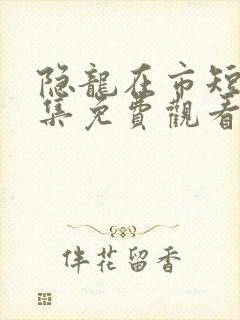 隐龍在市短
集免費觀看
伴花留香